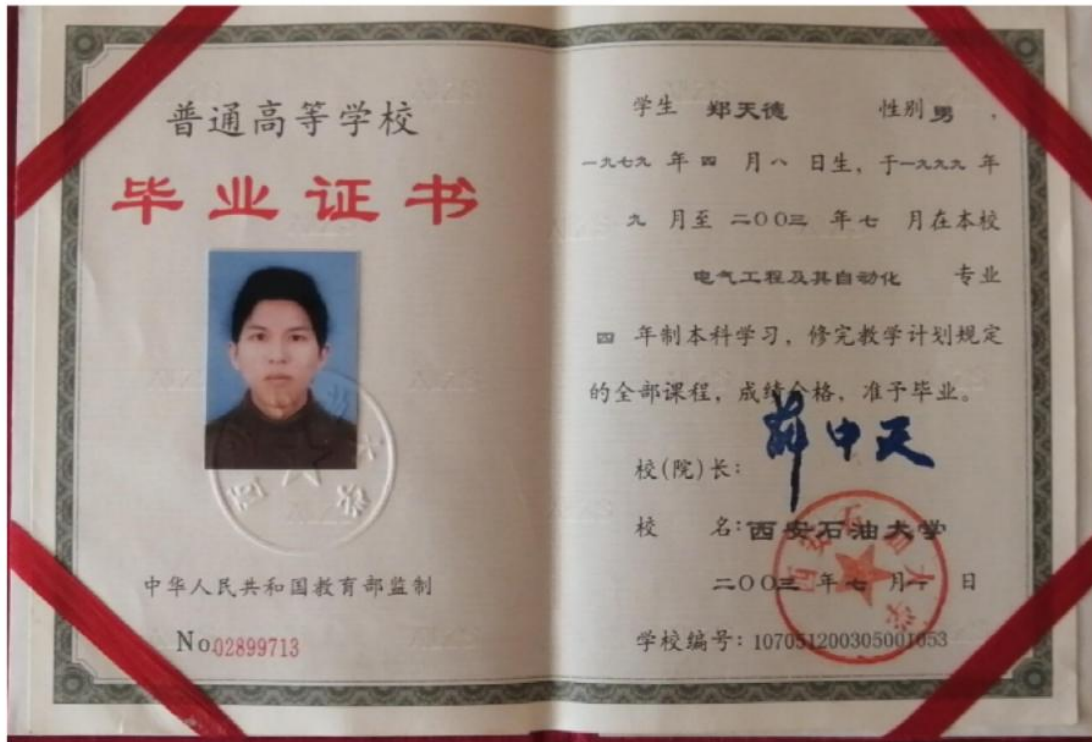 普通高等学校
毕业证书
中华人民共和国教育部监制
No.02899713
学生 郑天德 性别 男，
一九七九 年 四 月 八 日生，于 一九九九 年
九 月至 二〇〇三 年 七 月在本校
电气工程及其自动化 专业
四 年制本科学习，修完教学计划规定
的全部课程，成绩合格，准予毕业。
校(院)长：薛中天
校 名：西安石油大学
二〇〇三 年 七 月 一 日
学校编号：107051200305001053